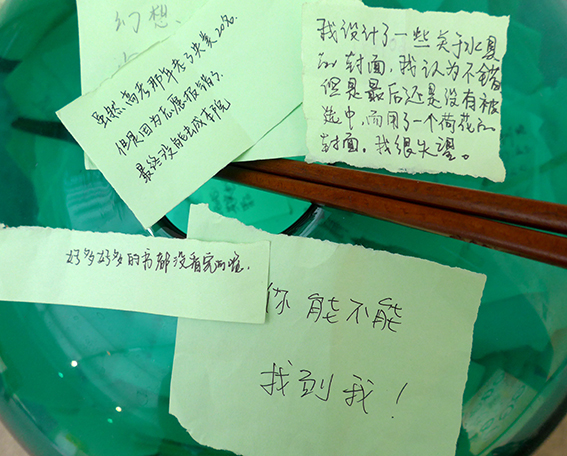 幻想.
虽然高考那年考了央美20名.
但是因为志愿报错了.
最终没能去成本院
我设计了一些关于水夏
的封面,我认为不错
但是最后还是没有被
选中,而用了一个荷花的
封面,我很失望。
好多好多的书都没看完
你能不能
找到我!